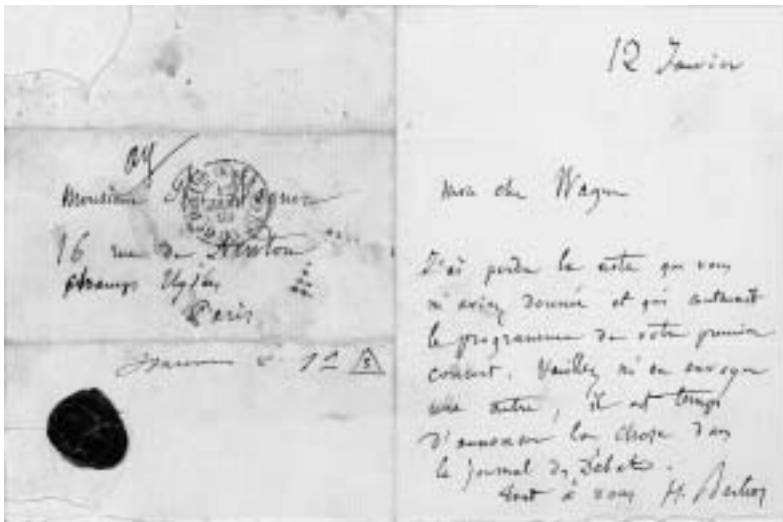 Monsieur R. Wagner
16 rue de Newton
Champs Elysées
Paris
12 Janvier
Mon cher Wagner
J'ai perdu la note que vous
m'aviez donnée et qui contenait
le programme de votre premier
concert. Veuillez m'en envoyer
une autre, il est temps
d'annoncer la chose dans
le journal des Débats.
tout à vous H. Berlioz